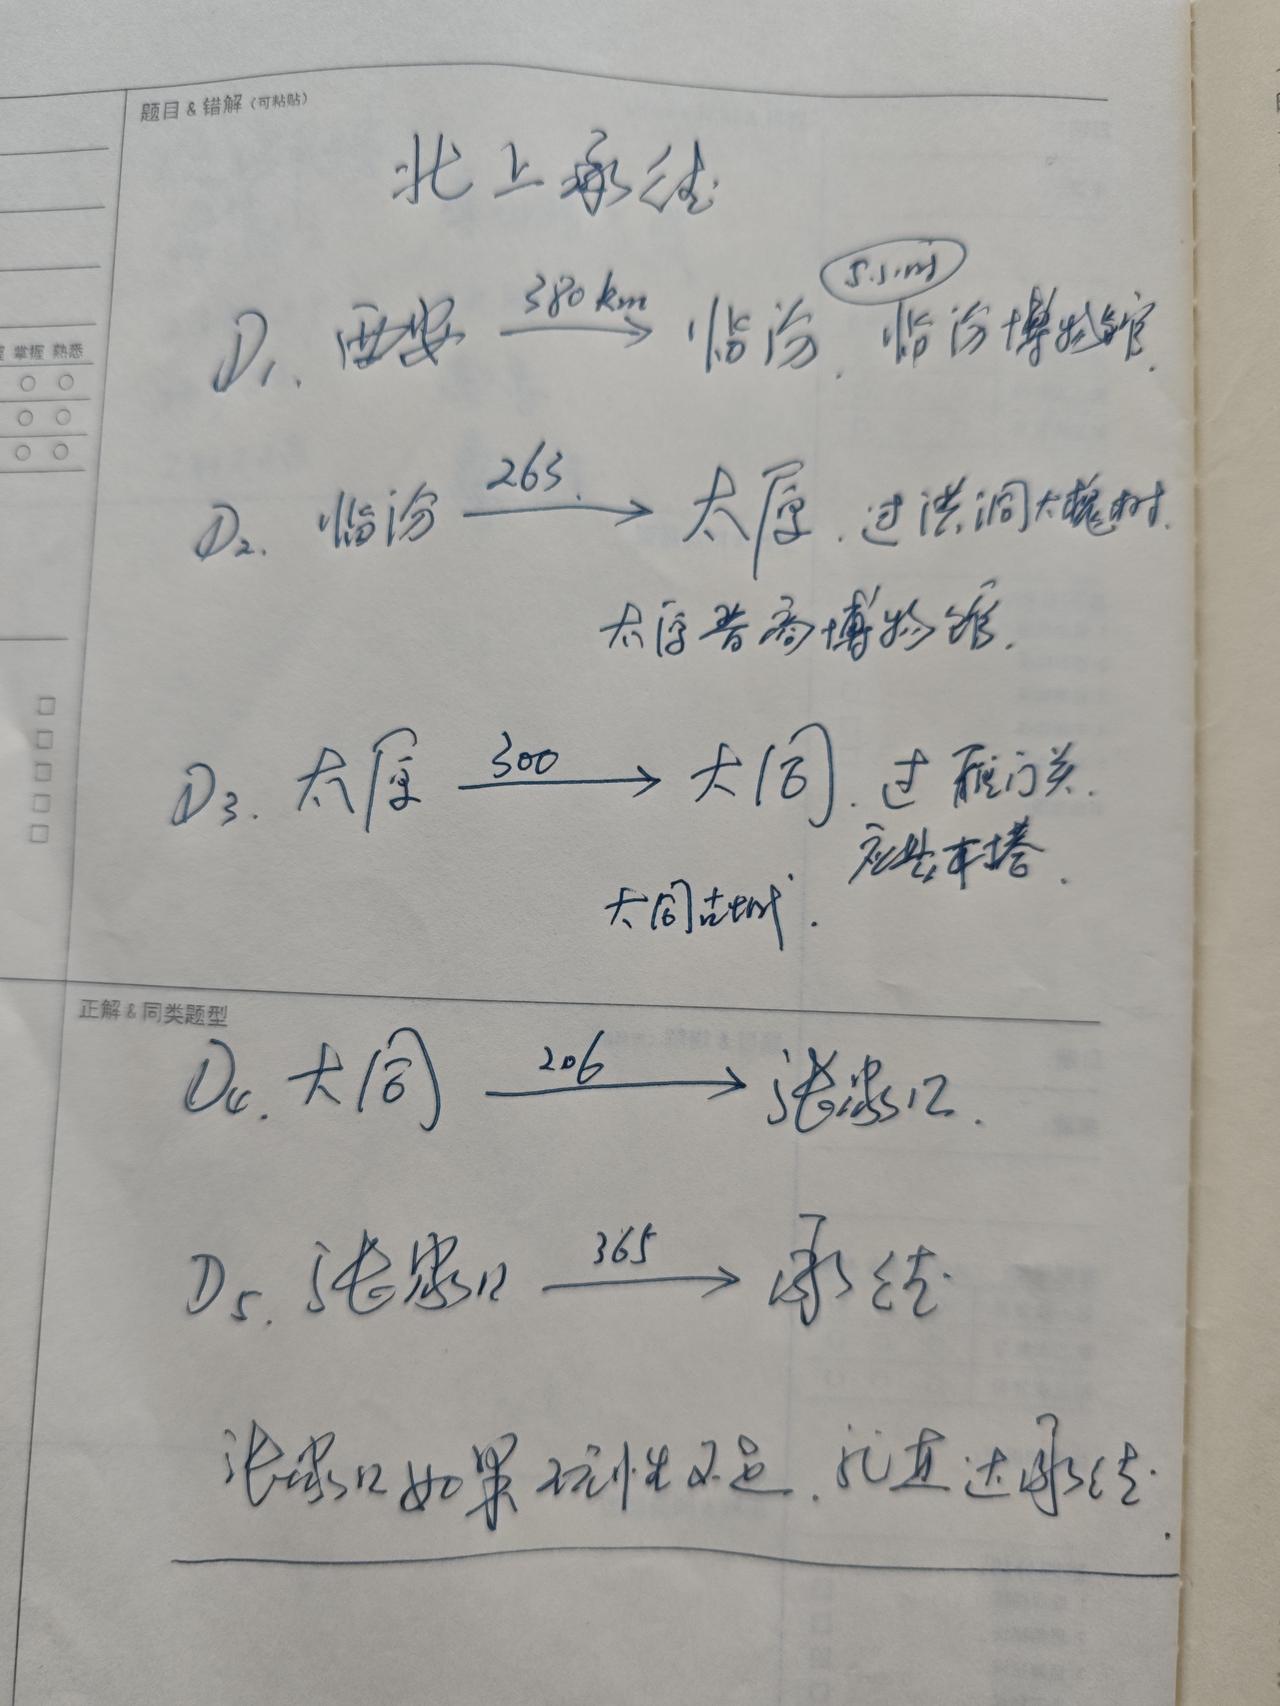 题目 & 错解（可粘贴）
北上承德
D1. 西安 380km 临汾. 临汾博物馆.
掌握 熟悉
D2. 临汾 263. 太原. 过洪洞大槐树.
太原晋商博物馆.
D3. 太原 300 大同. 过雁门关.
应县木塔.
大同古城.
正解 & 同类题型
D4. 大同 206 张家口.
D5. 张家口 365 承德
张家口如果玩性不足. 就直达承德.